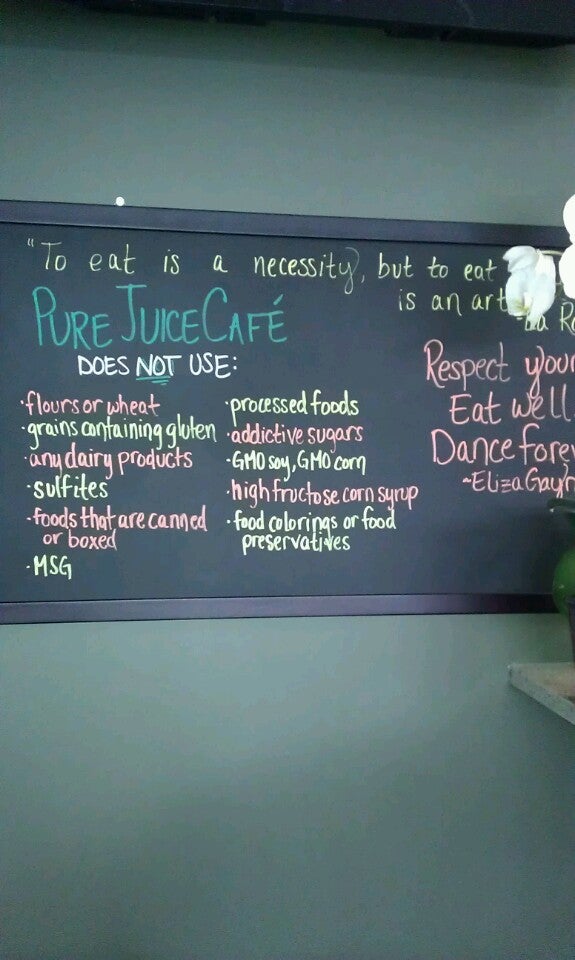 "To eat is a necessity, but to eat
is an art"
PURE JUICE CAFÉ
DOES NOT USE:
·flours or wheat
·grains containing gluten
·any dairy products
·sulfites
·foods that are canned
or boxed
·MSG
·processed foods
·addictive sugars
·GMO soy, GMO corn
·high fructose corn syrup
·food colorings or food
preservatives
Respect your
Eat well
Dance
~Eliza